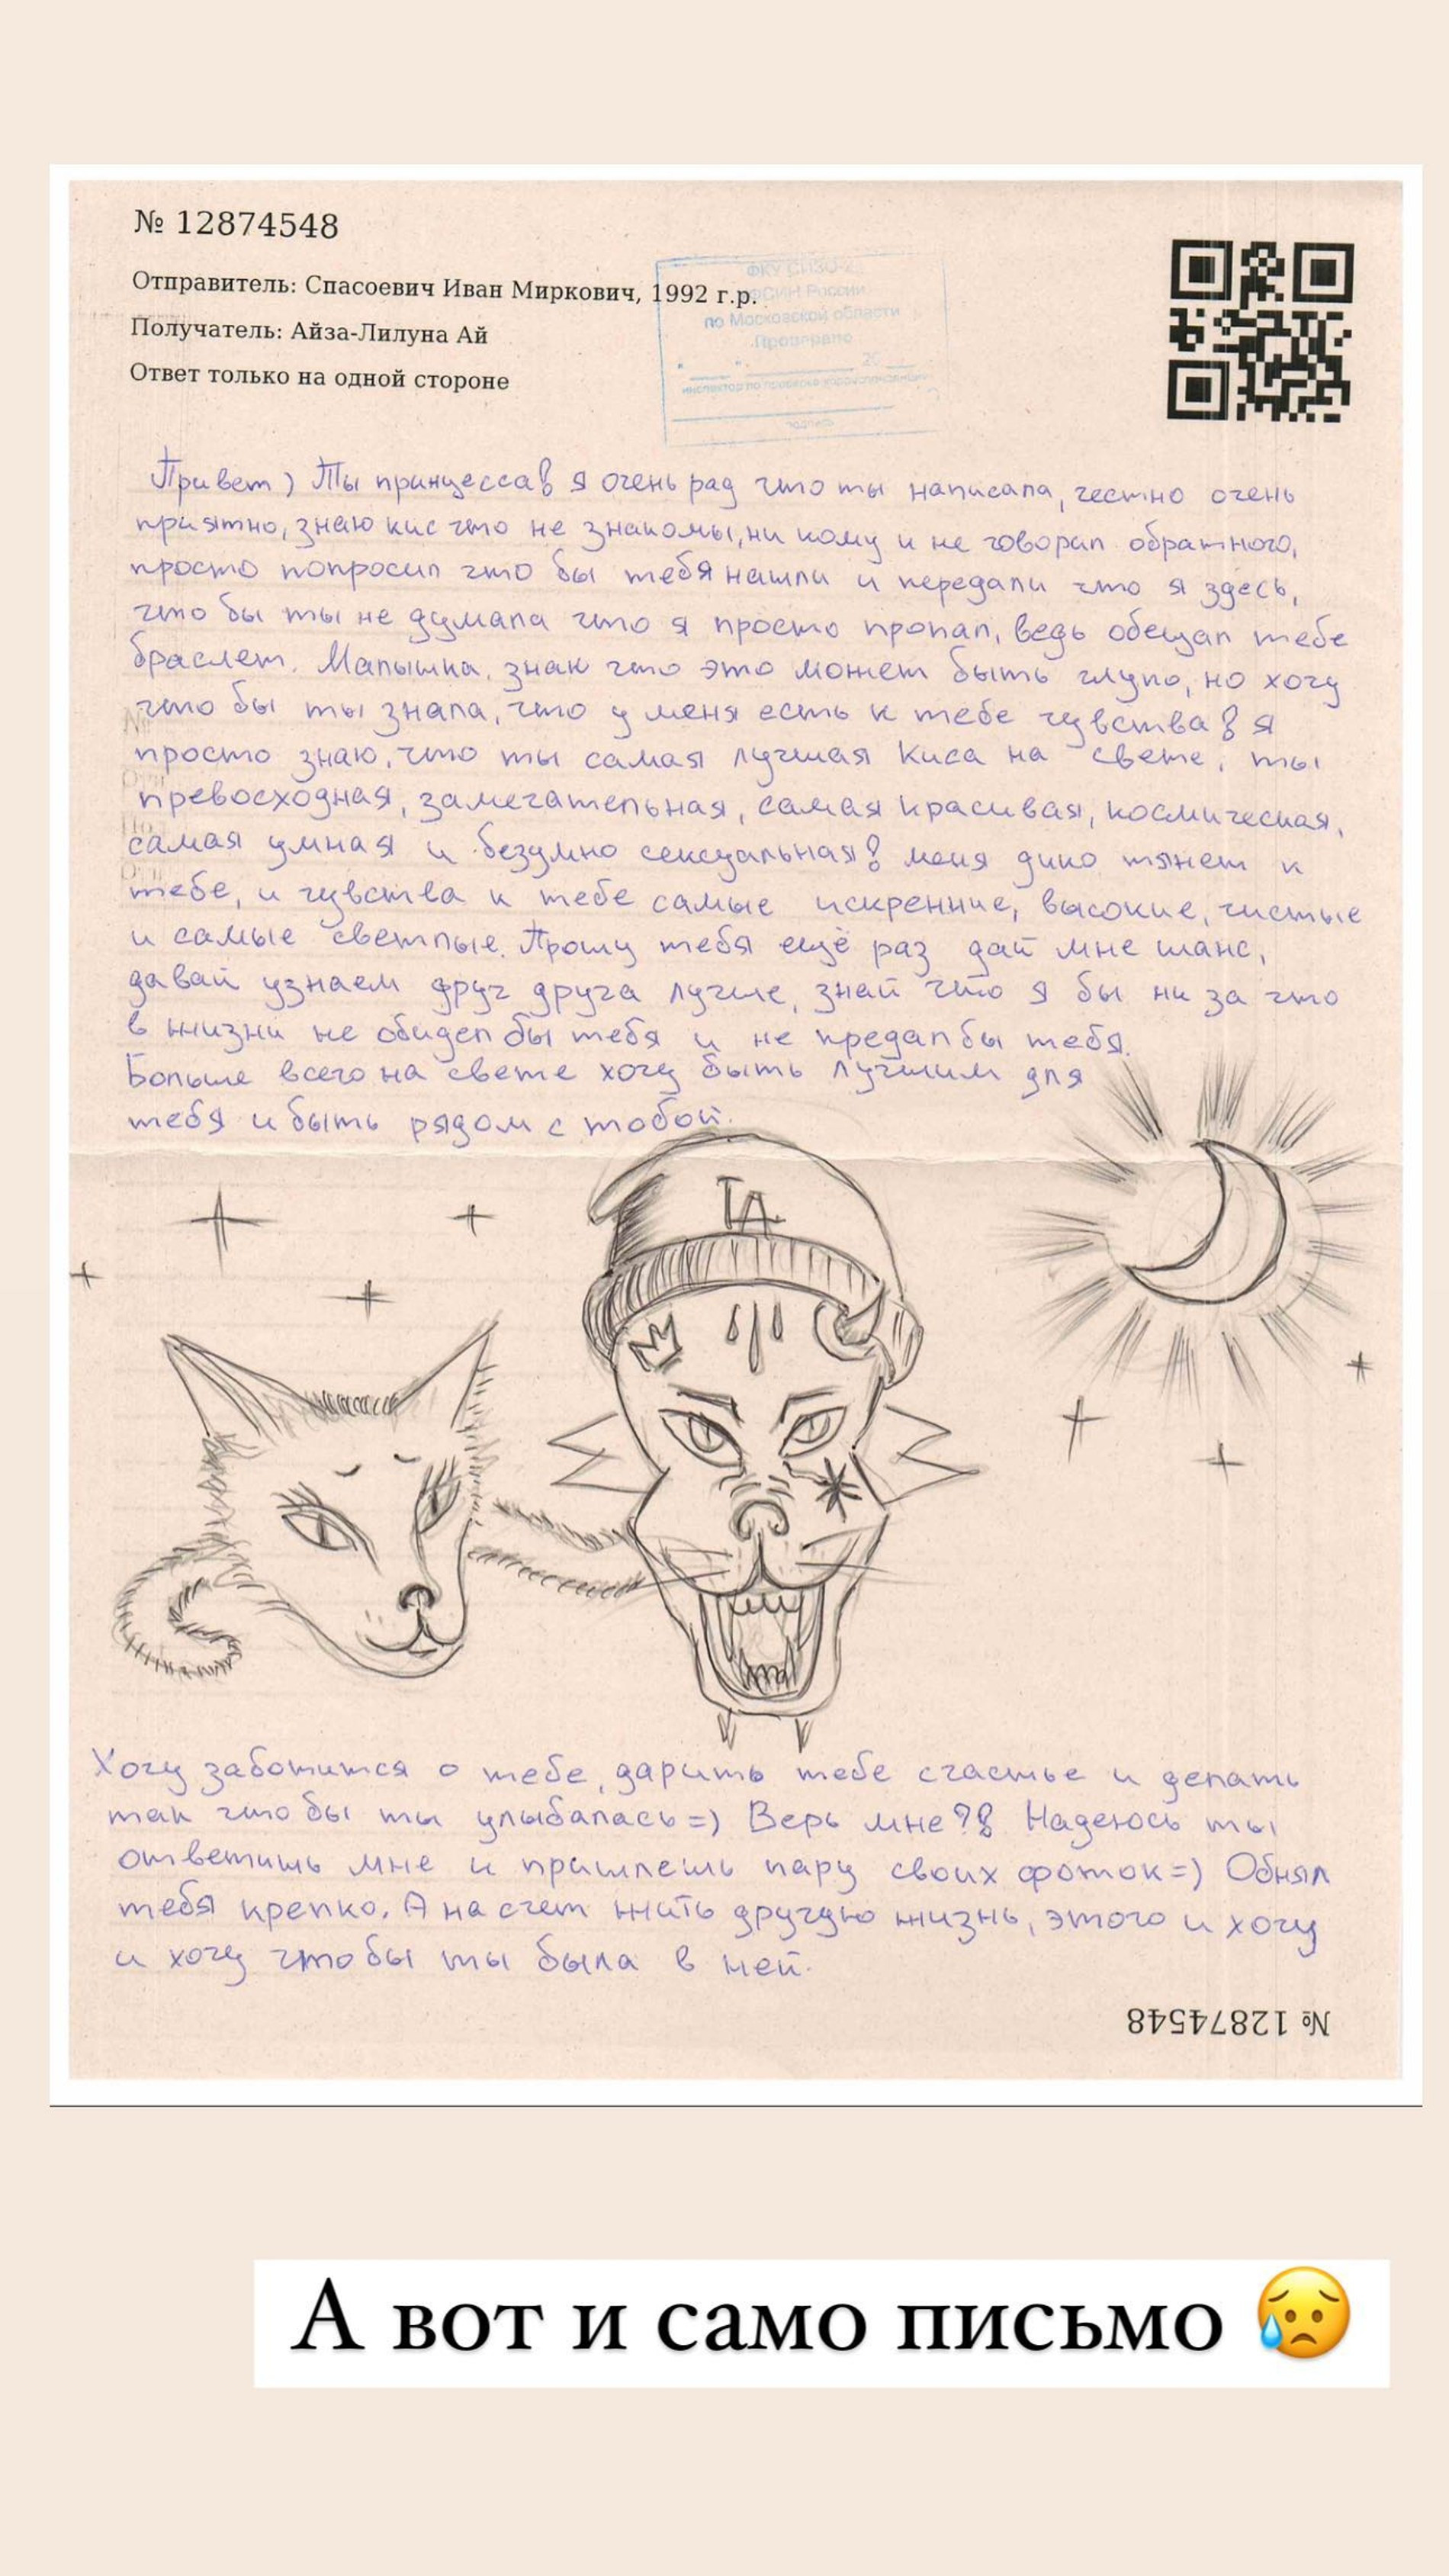 № 12874548
Отправитель: Спасоевич Иван Миркович, 1992 г.р.
Получатель: Айза-Лилуна Ай
Ответ только на одной стороне
ФКУ СИЗО-2
ФСИН России
по Московской области
Проверено
20
инспектор по проверке корреспонденции
подпись
Привет) Ты принцесса! я очень рад что ты написала, честно очень
приятно, знаю кис что не знакомы, ни кому и не говорил обратного,
просто попросил что бы тебя нашли и передали что я здесь,
что бы ты не думала что я просто пропал, ведь обещал тебе
браслет. Малышка, знаю что это может быть глупо, но хочу
что бы ты знала, что у меня есть к тебе чувства! я
просто знаю, что ты самая лучшая Киса на свете, ты
превосходная, замечательная, самая красивая, космическая,
самая умная и безумно сексуальная! меня дико тянет к
тебе, и чувства к тебе самые искренние, высокие, чистые
и самые светлые. Прошу тебя ещё раз дай мне шанс,
давай узнаем друг друга лучше, знай что я бы ни за что
в жизни не обидел бы тебя и не предал бы тебя.
Больше всего на свете хочу быть лучшим для
тебя и быть рядом с тобой.
LA
Хочу заботится о тебе, дарить тебе счастье и делать
так что бы ты улыбалась=) Верь мне?! Надеюсь ты
ответишь мне и пришлешь пару своих фоток=) Обнял
тебя крепко. А на счет жить другую жизнь, этого и хочу
и хочу что бы ты была в ней.
№ 12874548
А вот и само письмо 😥